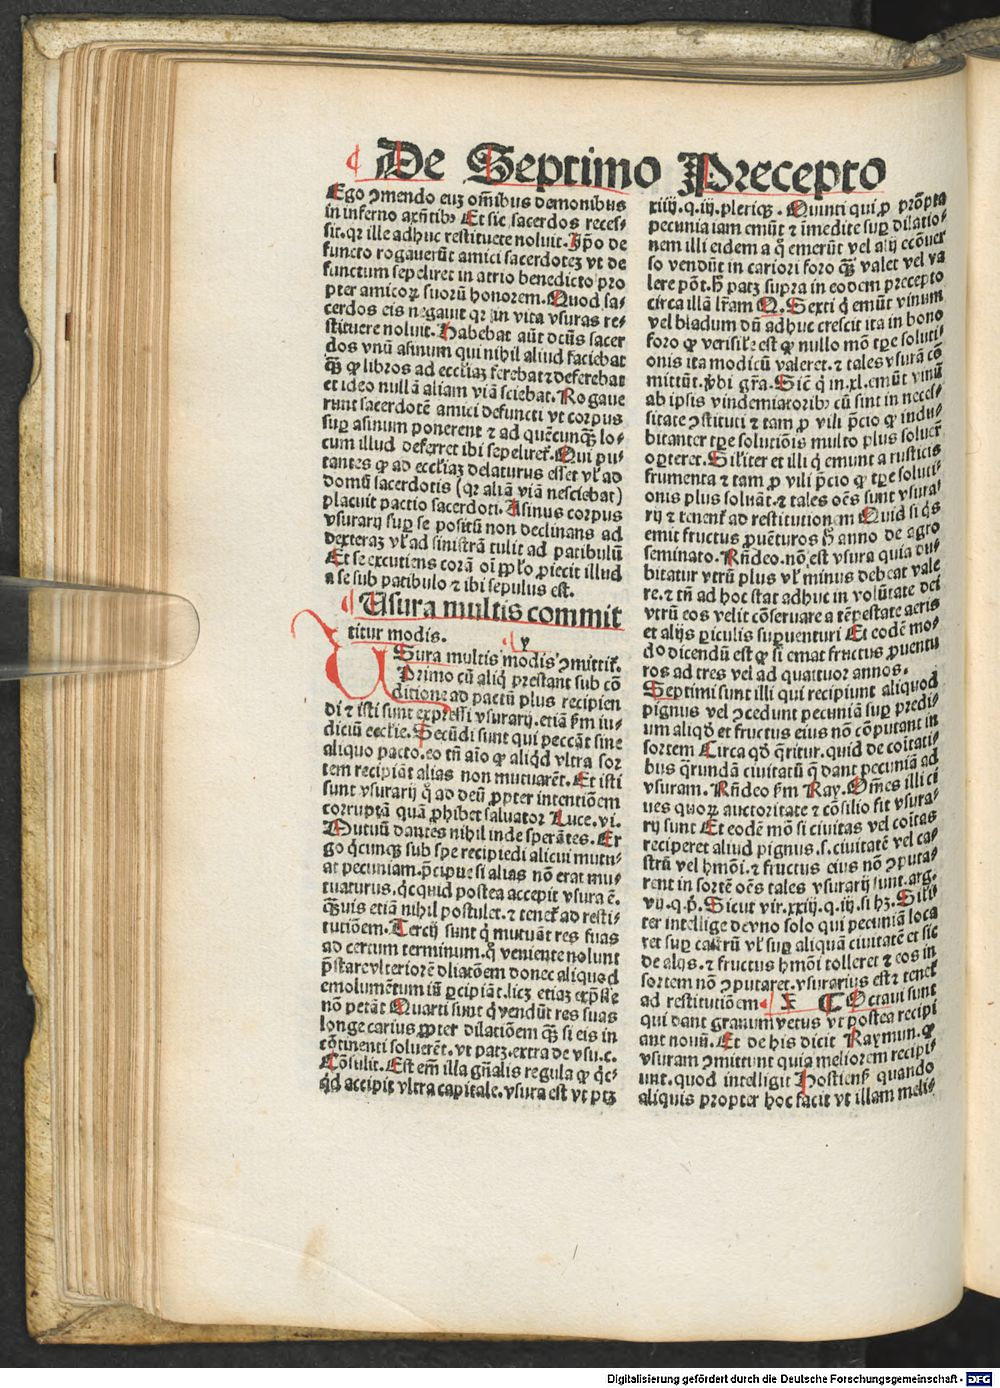 De Septimo Precepto
Ego ꝯmendo euꝫ om̄ibus demonibus
in inferno Et sic sacerdos reces⸗
sit. qꝛ ille adhuc restituere noluit. Ip̄o de
functo rogauerūt amici sacerdoteꝫ vt de
functum sepeliret in atrio benedicto pro
pter amicoꝝ suorū honorem. Quod sa⸗
cerdos eis negauit qꝛ in vita vsuras re⸗
stituere noluit. Habebat aūt dcūs sacer
dos vnū asinum qui nihil aliud faciebat
qꝫ̄ ꝙ libros ad eccłiaꝫ ferebat ⁊ deferebat
et ideo nullā aliam viā sciebat. Rogaue
runt sacerdotē amici defuncti vt corpus
suꝑ asinum ponerent ⁊ ad quēcunqꝫ lo⸗
cum illud deferret ibi sepeliret̄. Qui pu⸗
tantes ꝙ ad eccłiaꝫ delaturus esset vł ad
domū sacerdotis (qꝛ aliā viā nesciebat)
placuit pactio sacerdoti. Asinus corpus
vsurarij suꝑ se positū non declinans ad
dexteraꝫ vł ad sinistrā tulit ad patibulū
Et se excutiens corā oī pp̄lo ꝓiecit illud
a se sub patibulo ⁊ ibi sepulus est.
Usura multis commit
titur modis. y
USura multis modis ꝯmittit̄.
Primo cū aliq̄ prestant sub cō
ditione ad pactū plus recipien
di ⁊ isti sunt expressi vsurarij. etiā ẜm iu⸗
dicium eccłie. Secūdi sunt qui peccāt sine
aliquo pacto. eo tn̄ aīo ꝙ aliqd̄ vltra sor
tem recipiāt alias non mutuarēt. Et isti
sunt vsurarij q̊ ad deū ꝓpter intentiōem
corruptā quā ꝓhibet saluator Luce. vi.
Mutuū dantes nihil inde sperātes. Er
go q̄cunqꝫ sub spe recipiēdi alicui mutu⸗
at pecuniam. p̄cipue si alias nō erat mu⸗
tuaturus. q̄cquid postea accepit vsura ē.
qꝫ̄uis etiā nihil postulet. ⁊ tenet̄ ad resti⸗
tutiōem. Tercij sunt q̄ mutuāt res suas
ad certum terminum. q̊ veniente nolunt
p̄stare vlteriorē dilatiōem donec aliquod
emolumētum in ꝑcipiāt. licꝫ etiaꝫ exp̄sse
nō petāt Quarti sunt q̄ vendūt res suas
longe carius ꝓpter dilatiōem qꝫ̄ si eis in
cōtinenti soluerēt. vt patꝫ. extra de vsu. c.
Cōsulit. Est em̄ illa gn̄alis regula ꝙ q̄c⸗
q̄d accipit vltra capitale. vsura est vt ptꝫ
xiiij. q. iij. pleriqꝫ. Quinti qui ꝓ prōpta
pecunia iam emūt ⁊ īmedite suꝑ dilatio⸗
nem illi eidem a q̊ emerūt vel alij ecōuer
so vendūt in cariori foro qꝫ̄ valet vel va
lere pōt. h̄ patꝫ supra in eodem precepto
circa illā lr̄am Q. Sexti q̄ emūt vinum
vel bladum dū adhuc crescit ita in bono
foro ꝙ verisiłe est ꝙ nullo mō tꝑe soluti⸗
onis ita modicū valeret. ⁊ tales vsurā cō
mittūt. ꝟbi gr̄a. Sic̄ q̄ in. xl. emūt vinū
ab ipsis vindemiatoribꝰ cū sint in neces⸗
sitate ꝯstituti ⁊ tam ꝓ vili p̄cio ꝙ indu⸗
bitanter tꝑe solutiōis multo plus soluer̄
oꝑteret. Siłiter et illi q̄ emunt a rusticis
frumenta ⁊ tam ꝓ vili p̄cio ꝙ tꝑe soluti⸗
onis plus soluāt. ⁊ tales oēs sunt vsura⸗
rij ⁊ tenent̄ ad restitutionem Quid si q̄s
emit fructus ꝓuēturos h̄ anno de agro
seminato. Rn̄deo. nō est vsura quia du⸗
bitatur vtrū plus vł minus debeat vale
re. ⁊ tn̄ ad hoc stat adhuc in volūtate dei
vtrū eos velit cōseruare a tēpestate aeris
et alijs ꝑiculis suꝑuenturi Et eodē mo⸗
do dicendū est ꝙ si emat fructus ꝓuentu
ros ad tres vel ad quattuor annos.
Septimi sunt illi qui recipiunt aliquod
pignus vel ꝯcedunt pecuniā suꝑ predi⸗
um aliqd̄ et fructus eius nō cōputant in
sortem Circa qd̄ q̄ritur. quid de cōitati⸗
bus q̄rundā ciuitatū q̄ dant pecuniā ad
vsuram. Rn̄deo ẜm Ray. Om̄es illi ci
ues quoꝝ auctoritate ⁊ cōsilio fit vsura⸗
rij sunt Et eodē mō si ciuitas vel cōitas
reciperet aliud pignus. s. ciuitatē vel ca⸗
strū vel hmōi. ⁊ fructus eius nō ꝯputa⸗
rent in sortē oēs tales vsurarij sunt. arg.
vij. q. p̄. Sicut vir. xxiij. q. iij. si hꝫ. Sili
ter intellige de vno solo qui pecuniā loca
ret suꝑ castrū vł suꝑ aliquā ciuitatē et sic
de alijs. ⁊ fructus hmōi tolleret ⁊ eos in
sortem nō ꝯputaret. vsurarius est ⁊ tenet̄
ad restitutiōem. ꝫ ¶ Octaui sunt
qui dant granum vetus vt postea recipi
ant nouū. Et de his dicit Raymun. ꝙ
vsuram ꝯmittunt quia meliorem recipi⸗
unt. quod intelligit Hostienẜ quando
aliquis propter hoc facit vt illam melio⸗
Digitalisierung gefördert durch die Deutsche Forschungsgemeinschaft - DFG